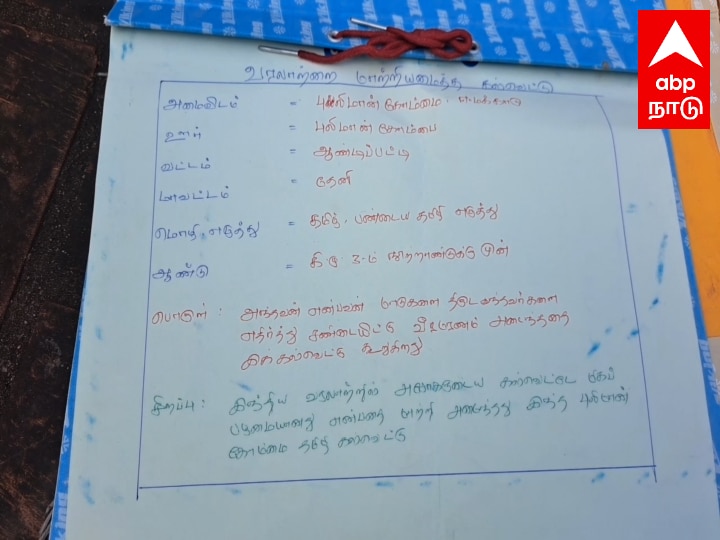 abp
நாடு
வரலாற்றை மாற்றியமைத்த கல்வெட்டு
அமைவிடம் = புலிமான் கோம்மை,
ஊர் = புலிமான் கோம்பை
வட்டம் = ஆண்டிப்பட்டி
மாவட்டம் = தேனி
மொழி, எழுத்து = தமிழ், பண்டைய தமிழ் எழுத்து
ஆண்டு = கி.மு 3-ம் நூற்றாண்டுக்கு முன்
பொருள் : அந்தவன் என்பவன் மாடுகளை திருட வந்தவர்களை
எதிர்த்து சண்டையிட்டு வீரமரணம் அடைந்ததை
இக் கல்வெட்டு கூறுகிறது
சிறப்பு : இந்திய வரலாற்றில் அசோகருடைய கல்வெட்டே மிகப்
பழமையானது என்பதை மாற்றி அமைத்தது இந்த புலிமான்
கோம்மை தமிழ் கல்வெட்டு